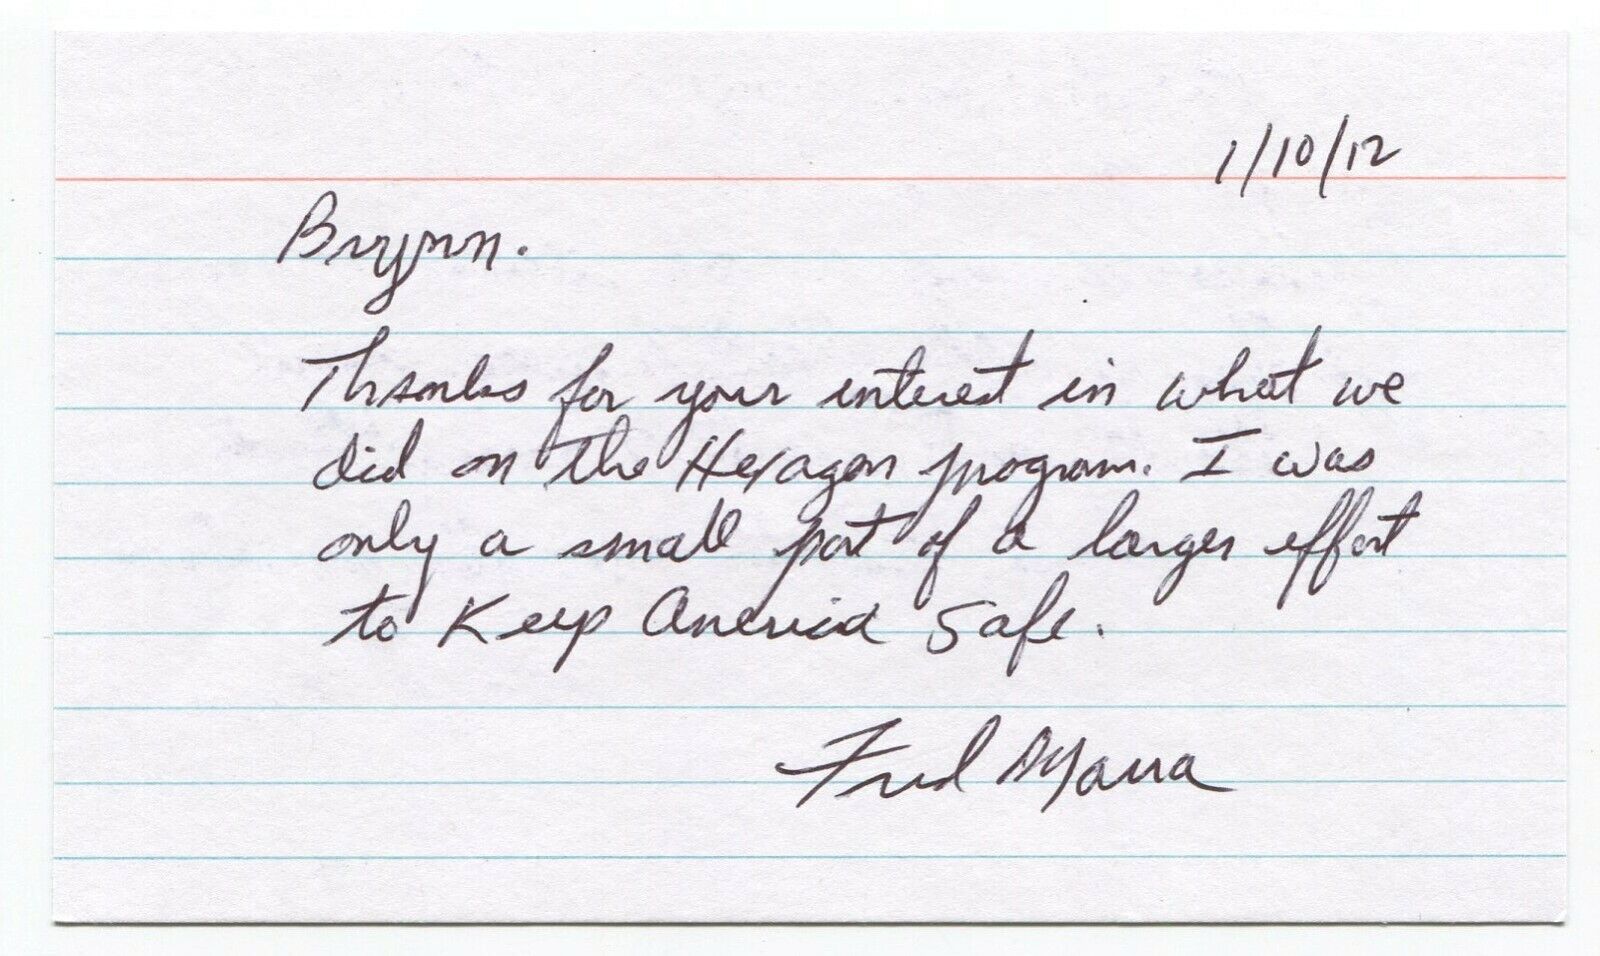 1/10/12
Brynn.
Thanks for your interest in what we
did on the Hexagon program. I was
only a small part of a larger effort
to Keep America Safe.
Fred Marra